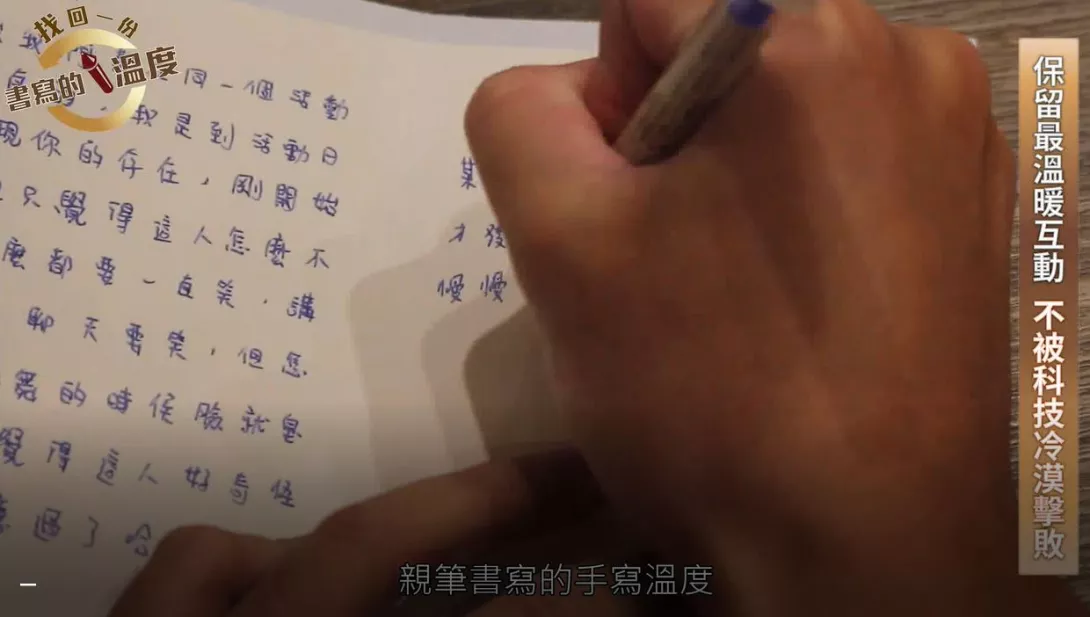 找回一份
書寫的溫度
同一個活動
就是到活動日
現你的存在，剛開始
只覺得這人怎麼不
麼都要一直笑，講
聊天要笑，但怎
舞的時候臉就是
覺得這人好奇怪
過了
某
才發
慢慢
保留最溫暖互動 不被科技冷漠擊敗
親筆書寫的手寫溫度